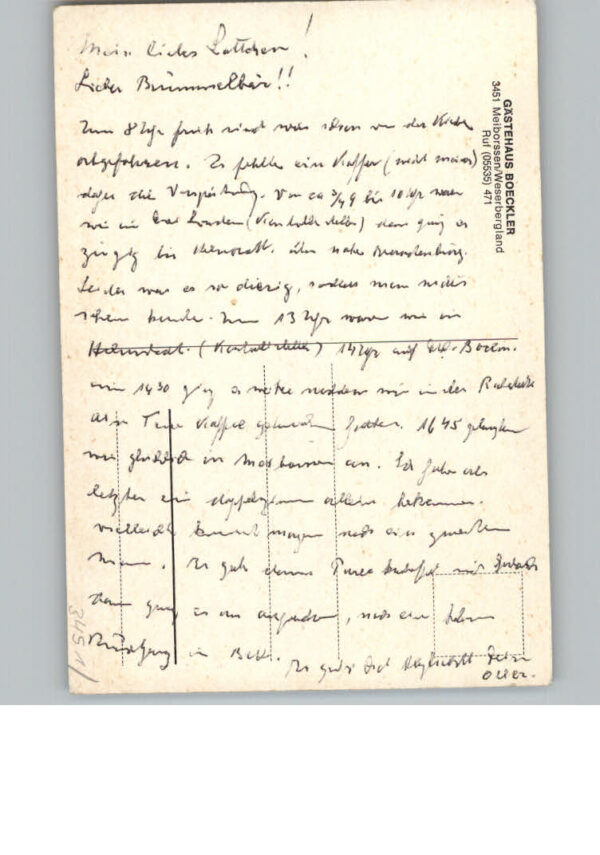 Mein liebes Lottchen!
Lieber Brummelbär!!
Zum 8 Uhr früh sind wir schon von der
abgefahren. Es fehlte ein Koffer (nicht meiner)
daher die Verspätung. Von ca 3/4 9 bis 10 Uhr waren
wir in (Kontrollstelle) dann ging es
zügig bis über Brandenburg.
Leider war es so diesig, sodass man nichts
sehen konnte. Um 13 Uhr waren wir in
Helmstedt. (Kontrollstelle) 14 Uhr auf
um 14 30 ging es weiter nachdem wir in der Raststätte
eine Tasse Kaffee getrunken hatten. 16 45 gelangten
wir glücklich in Meiborssen an. Ich habe als
letzter ein Doppelzimmer allein bekommen.
vielleicht kommt morgen noch ein zweiter
Mann. Es gab dann
dann ging es ans auspacken, noch ein kleiner
Rundgang ins Bett.
Es grüßt Dich herzlichst Dein
GÄSTEHAUS BOECKLER
3451 Meiborssen/Weserbergland
Ruf (05535) 471
3451